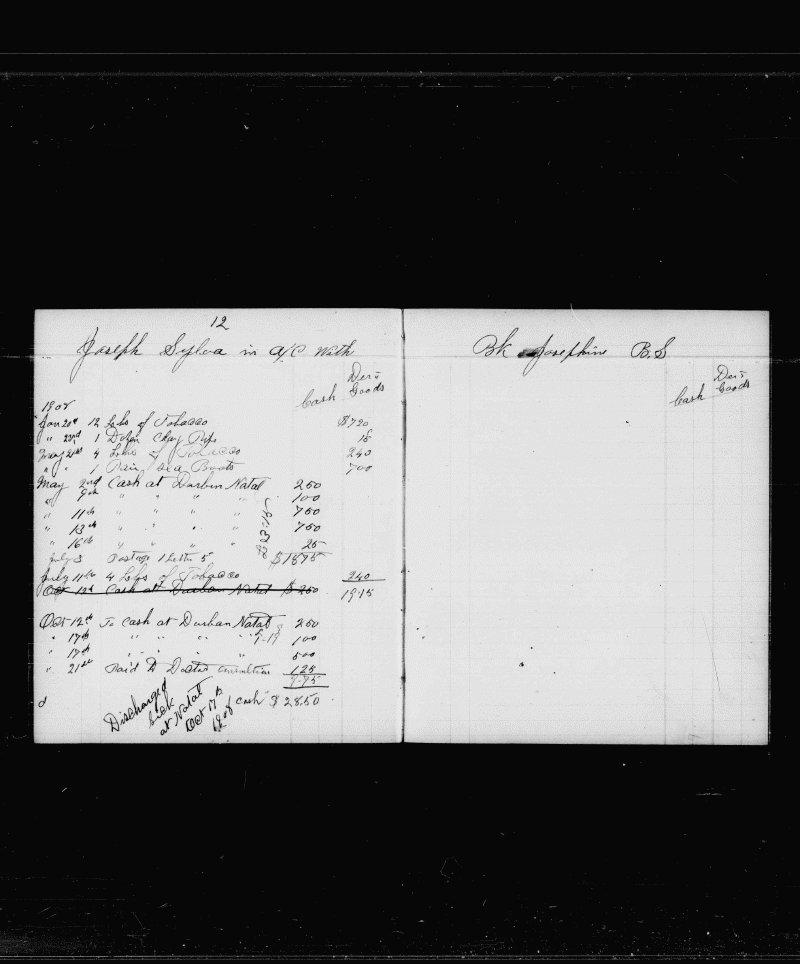 12
Joseph Sylva in a/c With
Cash Goods
1908
Jan 20th 12 Lbs of Tobacco $720
" 22nd 1 Dozen Clay Pips 15
May 21st 4 Lbs of Tobacco 240
" " 1 Pair Sea Boots 700
May 2nd Cash at Durbin Natal 250
" 9th " " " " 100
" 11th " " " " 750
" 13th " " " " 750
" 16th " " " " 25
July 3 Postage 1 Letter 5 $1875
July 11th 4 Lbs of Tobacco 240
Oct 12th Cash at Durban Natal $250 1915
Oct 12th To Cash at Durban Natal 250
" 17th " " " " 100
" 17th " " " " 500
" 21st Paid to Doctor 125
9.75
Discharged
sick
at Natal
Oct 17th
1908
cash $28.50
Bk Josephine B.S
Cash Goods